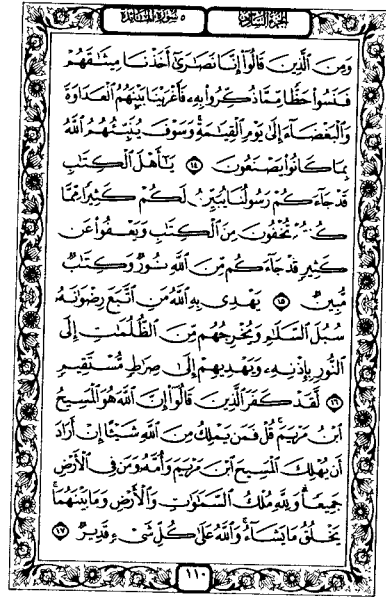 الجزء السادس ٥ سورة المائدة
وَمِنَ ٱلَّذِينَ قَالُوٓا۟ إِنَّا نَصَٰرَىٰٓ أَخَذْنَا مِيثَٰقَهُمْ
فَنَسُوا۟ حَظًّا مِّمَّا ذُكِّرُوا۟ بِهِۦ فَأَغْرَيْنَا بَيْنَهُمُ ٱلْعَدَاوَةَ
وَٱلْبَغْضَآءَ إِلَىٰ يَوْمِ ٱلْقِيَٰمَةِ وَسَوْفَ يُنَبِّئُهُمُ ٱللَّهُ
بِمَا كَانُوا۟ يَصْنَعُونَ ١٤ يَٰٓأَهْلَ ٱلْكِتَٰبِ
قَدْ جَآءَكُمْ رَسُولُنَا يُبَيِّنُ لَكُمْ كَثِيرًا مِّمَّا
كُنتُمْ تُخْفُونَ مِنَ ٱلْكِتَٰبِ وَيَعْفُوا۟ عَن
كَثِيرٍ قَدْ جَآءَكُم مِّنَ ٱللَّهِ نُورٌ وَكِتَٰبٌ
مُّبِينٌ ١٥ يَهْدِى بِهِ ٱللَّهُ مَنِ ٱتَّبَعَ رِضْوَٰنَهُۥ
سُبُلَ ٱلسَّلَٰمِ وَيُخْرِجُهُم مِّنَ ٱلظُّلُمَٰتِ إِلَى
ٱلنُّورِ بِإِذْنِهِۦ وَيَهْدِيهِمْ إِلَىٰ صِرَٰطٍ مُّسْتَقِيمٍ
١٦ لَّقَدْ كَفَرَ ٱلَّذِينَ قَالُوٓا۟ إِنَّ ٱللَّهَ هُوَ ٱلْمَسِيحُ
ٱبْنُ مَرْيَمَ قُلْ فَمَن يَمْلِكُ مِنَ ٱللَّهِ شَيْـًٔا إِنْ أَرَادَ
أَن يُهْلِكَ ٱلْمَسِيحَ ٱبْنَ مَرْيَمَ وَأُمَّهُۥ وَمَن فِى ٱلْأَرْضِ
جَمِيعًا وَلِلَّهِ مُلْكُ ٱلسَّمَٰوَٰتِ وَٱلْأَرْضِ وَمَا بَيْنَهُمَا
يَخْلُقُ مَا يَشَآءُ وَٱللَّهُ عَلَىٰ كُلِّ شَىْءٍ قَدِيرٌ ١٧
١١٠